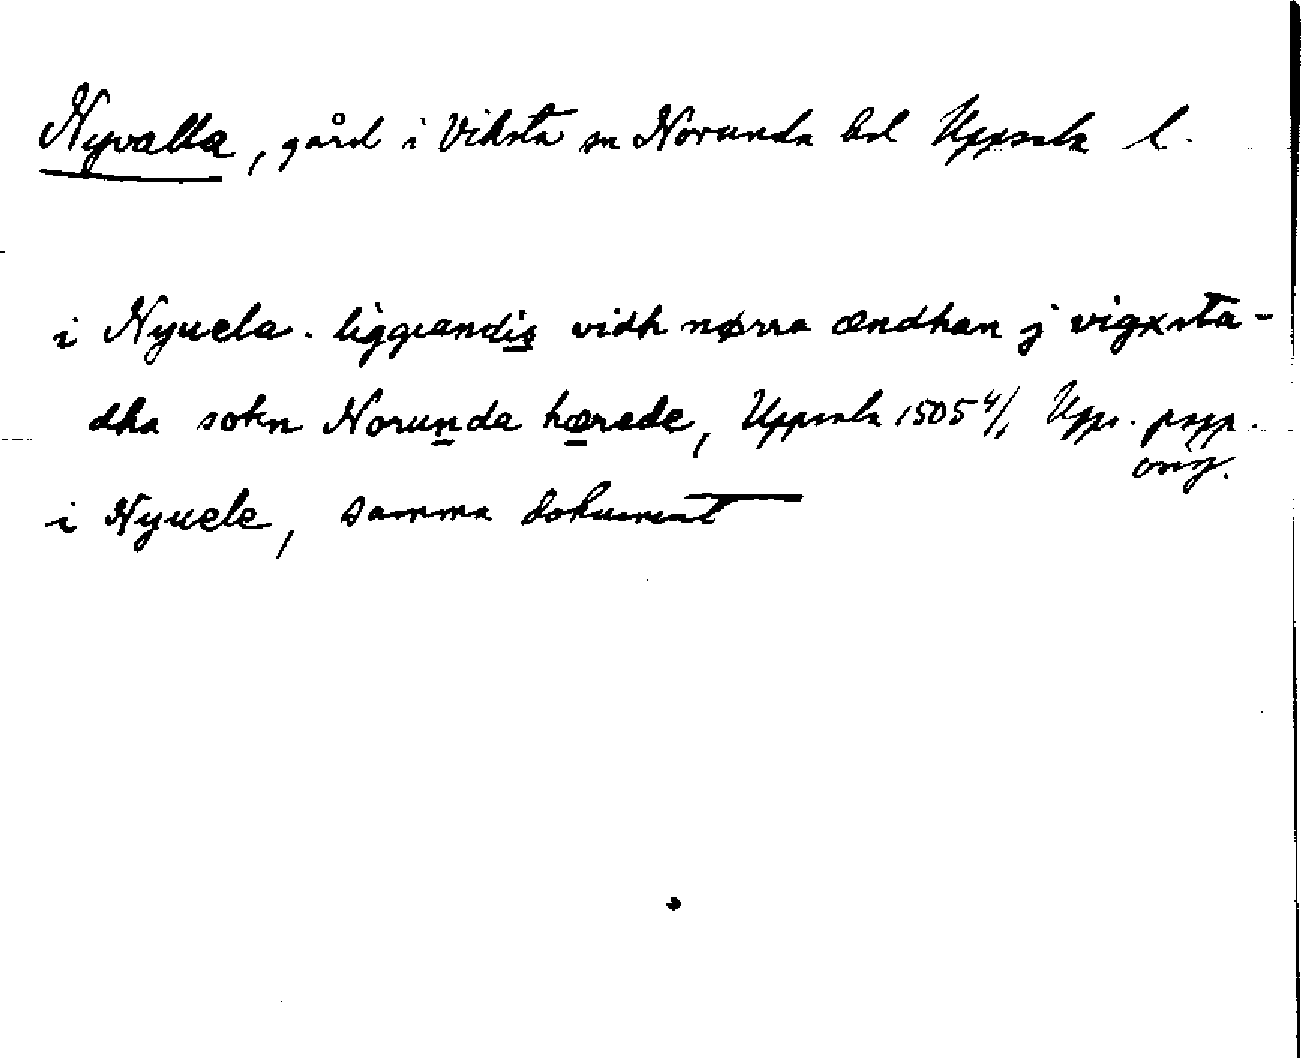 Nyvalla, gård i Viksta sn Norunda hd Uppsala l.
i Nyuela. liggiandis vidh nørra ændhan j vigxsta-
dha sokn Norunda hærade, Uppsala 1505 4/1 Upps. papp.
orig.
i Nyuele, samma dokument